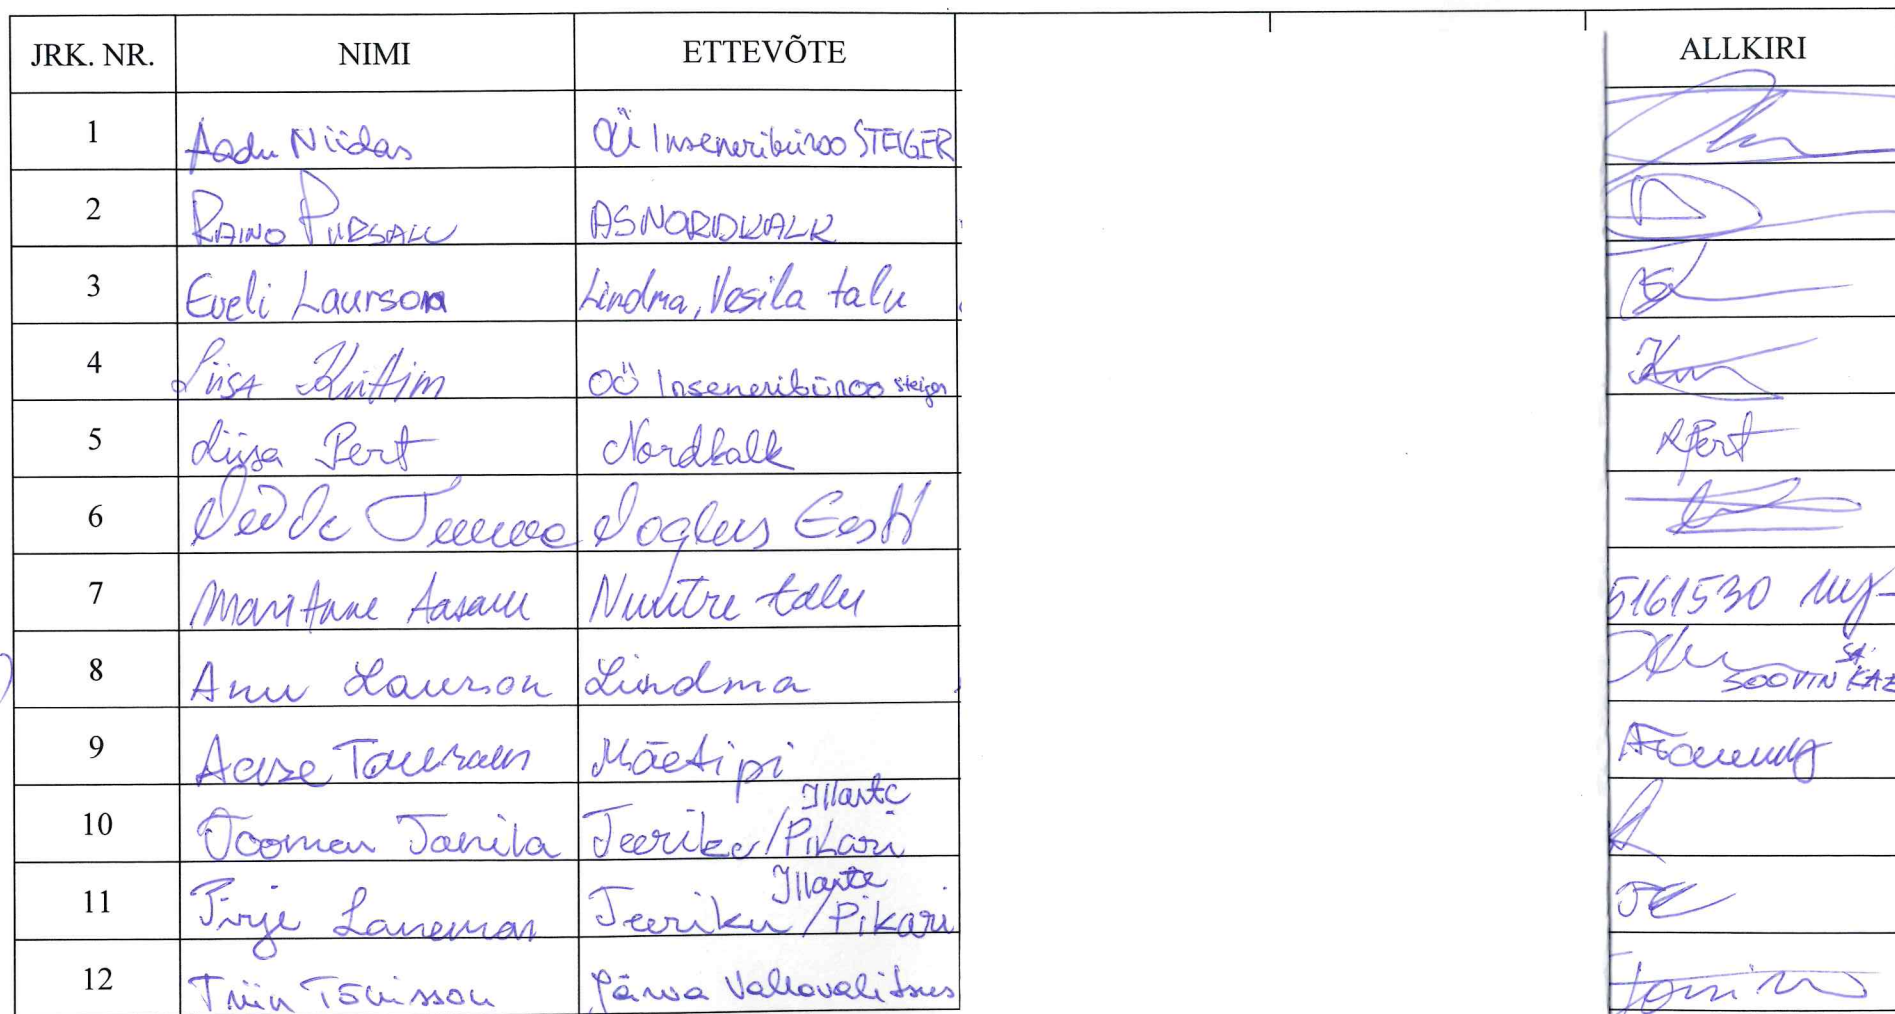 JRK. NR. NIMI ETTEVÕTE ALLKIRI
1 Aadu Niidas OÜ Inseneribüroo STEIGER
2 RAINO PURSALU AS NORDKALK
3 Eveli Laurson Lindma, Vesila talu
4 Liisa Küttim OÜ Inseneribüroo Steiger
5 Liisa Pert Nordkalk LPert
6 Eesti
7 MariAnne Aasaru talu 5161530
8 Anu Laurson Lindma
SOOVIN
9 Aase Mäetipi
Illaste
10 Toomas Tanila Teeriku/Pikari
Illaste
11 Pirje Laneman Teeriku/Pikari
12 Triin Tõnisson Järva Vallavalitsus